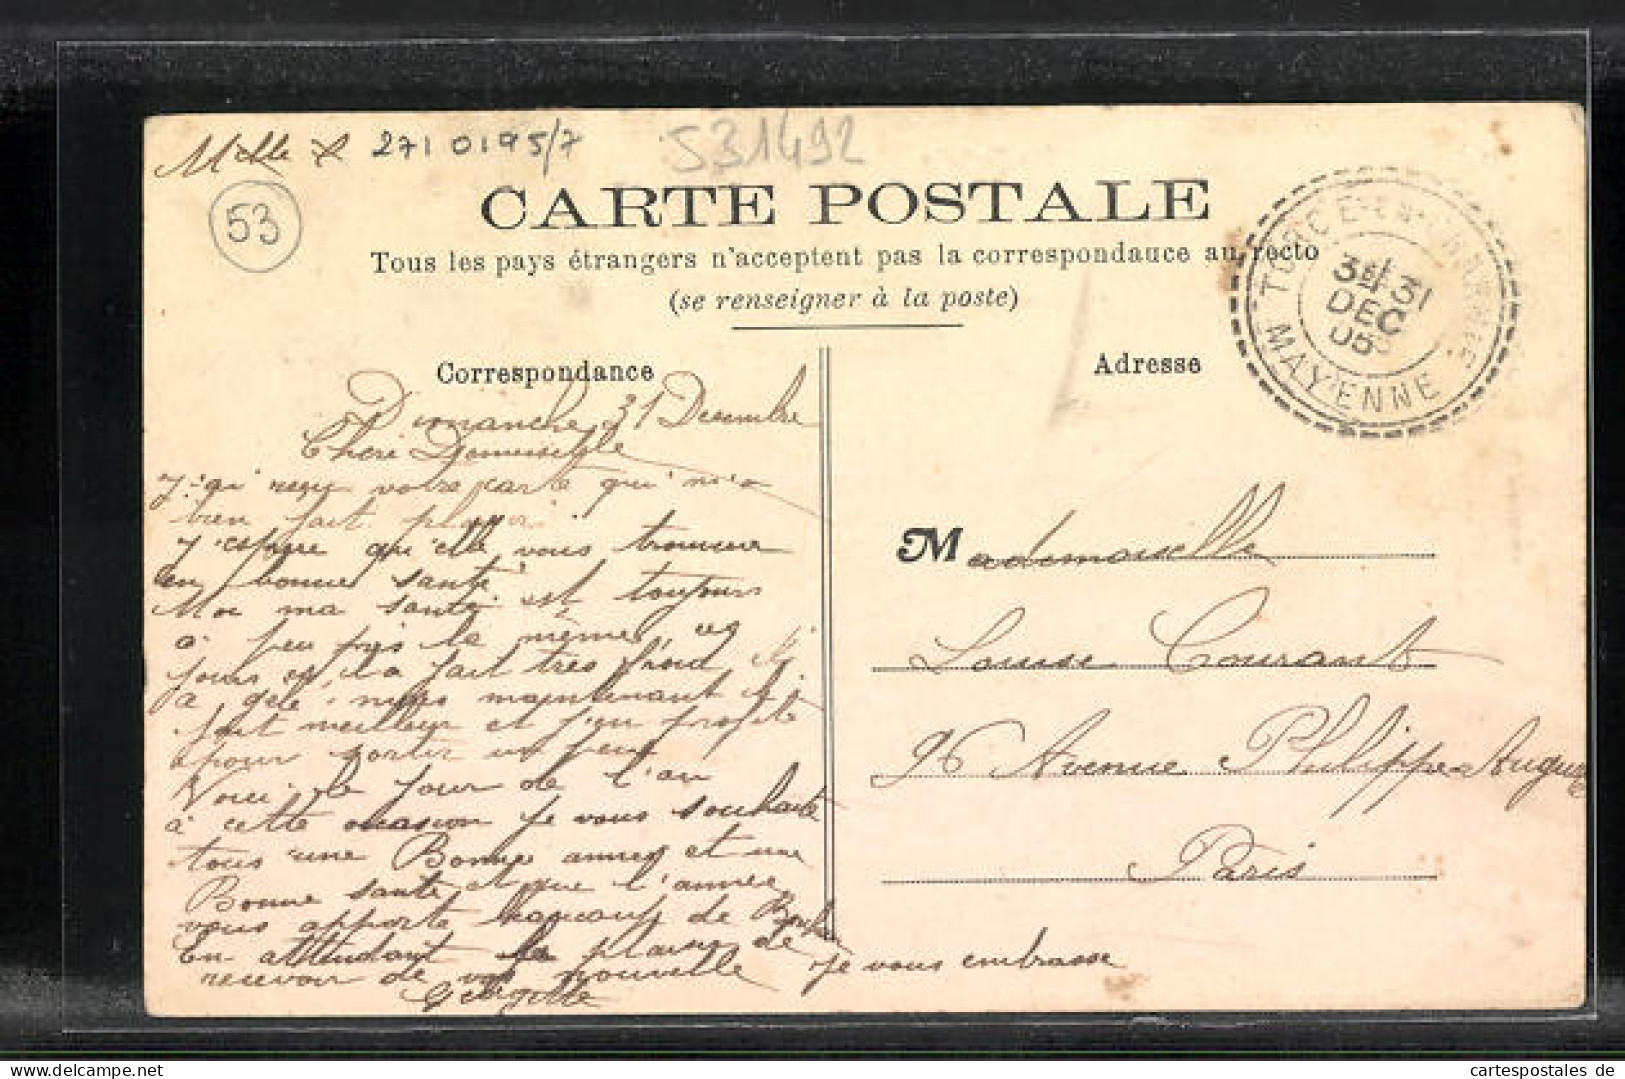 Melle 2710195/7
531492
53
CARTE POSTALE
Tous les pays étrangers n'acceptent pas la correspondance au recto
(se renseigner à la poste)
TORCE EN
MAYENNE
31
DEC
05
Correspondance
Adresse
Dimanche 31 Decembre
Cheri Demoiselle
J'ai reçu votre carte qui m'a
bien fait plaisir
J'espère qu'elle vous trouvera
en bonne santé
Moi ma santé est toujours
à peu près la même, ces
jours çi, il a fait très froid,
à gelé, mais maintenant il
fait meilleur et j'en profite
pour sortir un peu
Voici le jour de l'an
à cette occasion je vous souhaite
tous une Bonne année et une
Bonne santé et que l'année
vous apporte beaucoup de Bonheur
En attendant le plaisir de
recevoir de vos nouvelle je vous embrasse
Georgette
Mademoiselle
Louise Courant
96 Avenue Philippe Auguste
Paris
cartespostales de